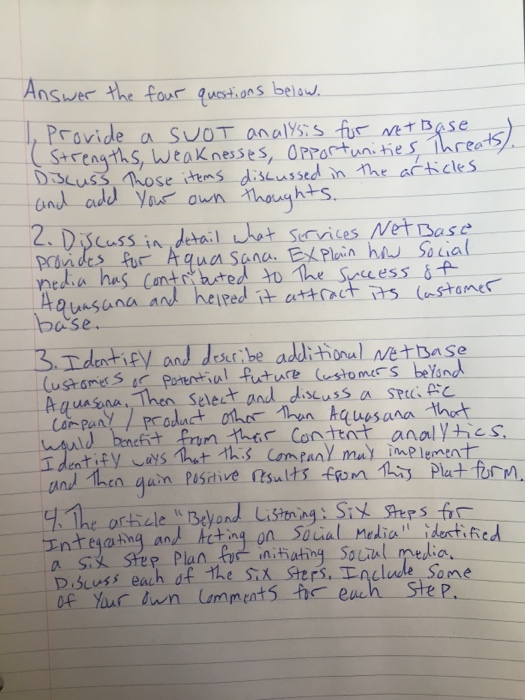 Answer the four questions below.
1. Provide a SWOT analysis for NetBase
(Strengths, Weaknesses, Opportunities, Threats).
Discuss those items discussed in the articles
and add your own thoughts.
2. Discuss in detail what services NetBase
provides for Aquasana. Explain how Social
media has contributed to the success of
Aquasana and helped it attract its customer
base.
3. Identify and describe additional NetBase
customers or potential future customers beyond
Aquasana. Then select and discuss a specific
company / product other than Aquasana that
would benefit from their content analytics.
Identify ways that this company may implement
and then gain positive results from this platform.
4. The article "Beyond Listening: Six Steps for
Integrating and Acting on Social Media" identified
a six step plan for initiating social media.
Discuss each of the six steps. Include some
of your own comments for each step.